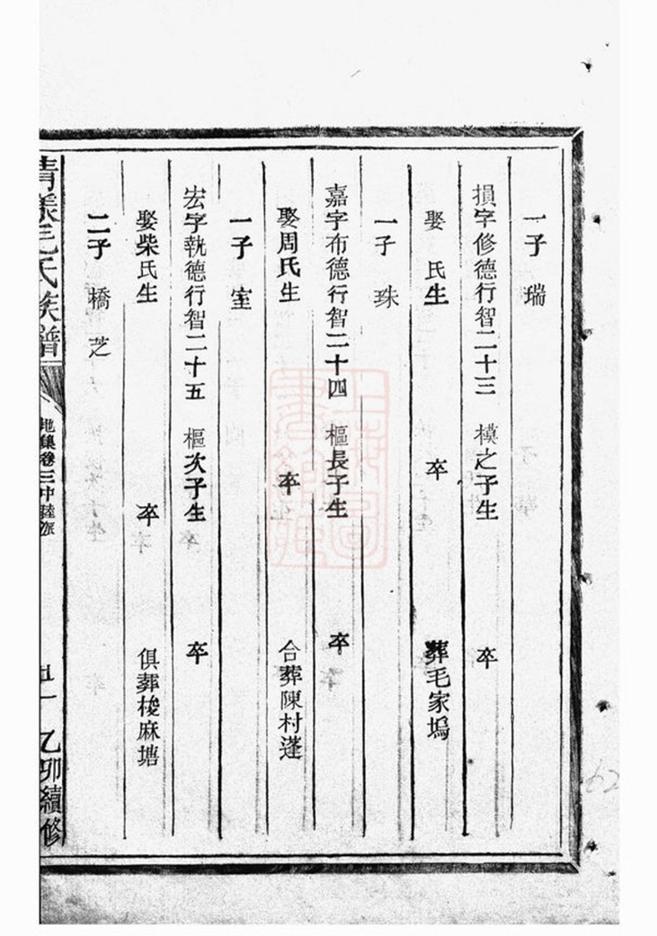 一子瑞
損字修德行智二十三　模之子生　卒
娶　氏生　卒　葬毛家塢
一子珠
嘉字布德行智二十四　樞長子生　卒
娶周氏生　卒　合葬陳村蓬
一子室
宏字執德行智二十五　樞次子生　卒
娶柴氏生　卒　俱葬梭麻塘
二子橋芝
清漾毛氏族譜　地集卷三中　乙卯續修
上海圖書館藏